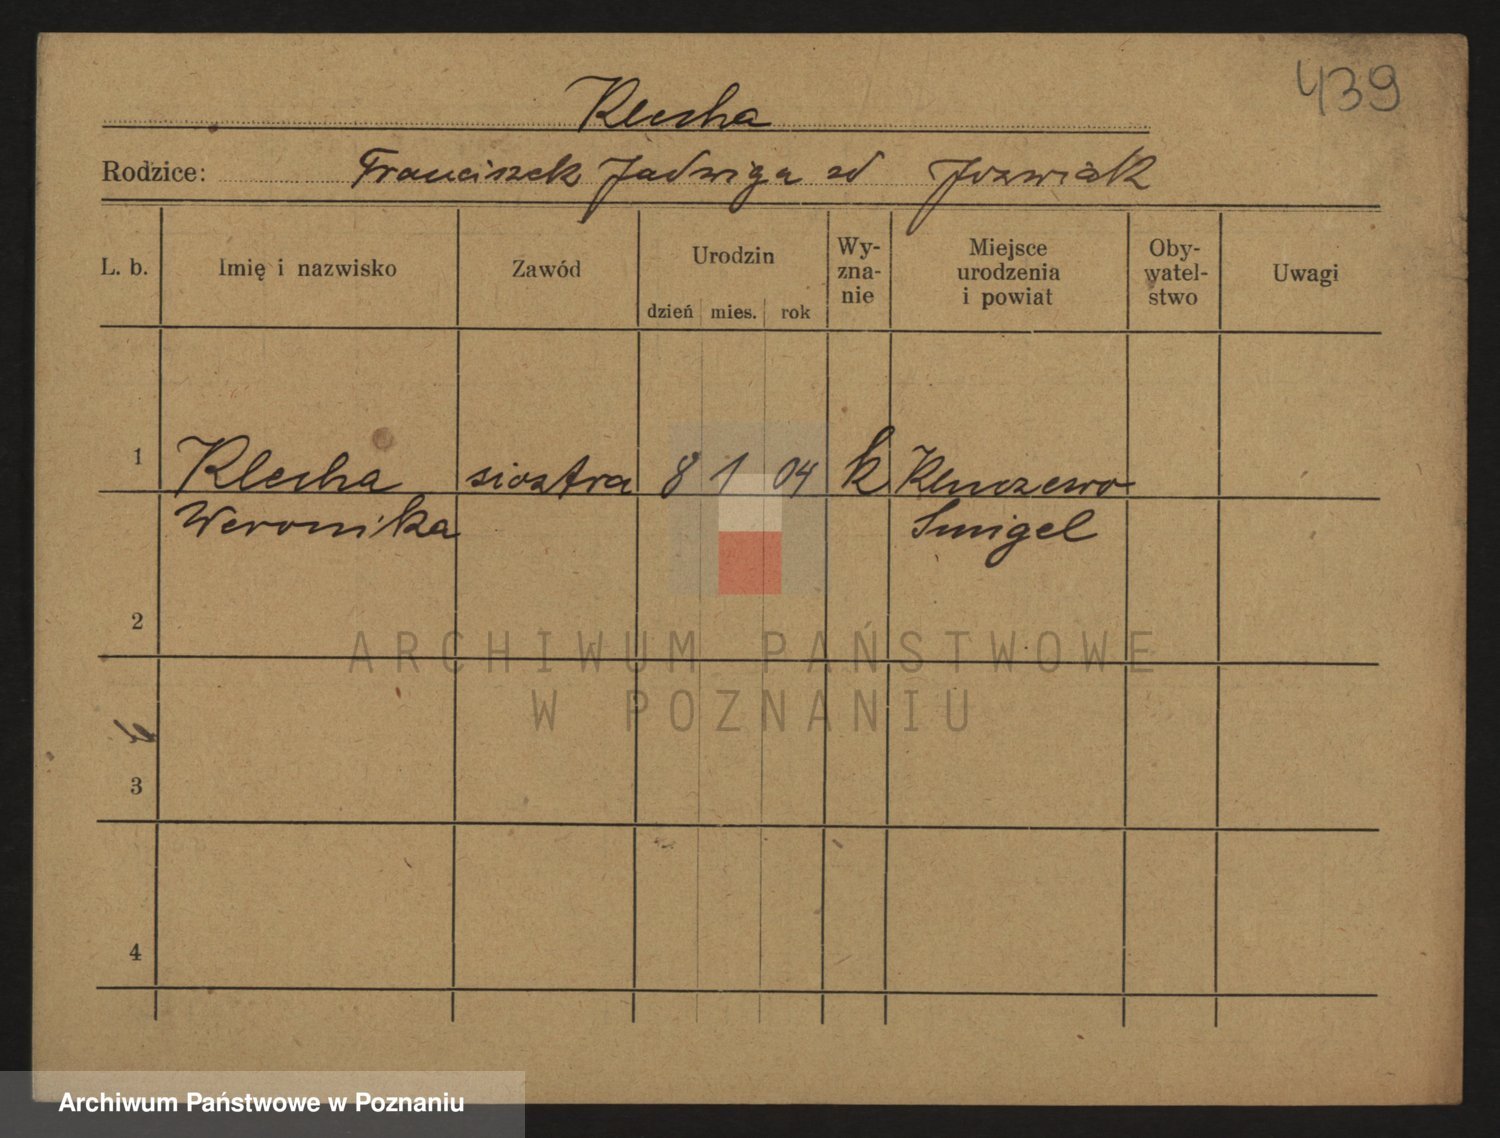 439
Klecha
Rodzice: Franciszek Jadwiga zd Jozwiak
L. b. Imię i nazwisko Zawód Urodzin dzień mies. rok Wy-zna-nie Miejsce urodzenia i powiat Oby-watel-stwo Uwagi
1 Klecha siostra 8 1 04 k Kluczewo
Weronika Smigel
2
ARCHIWUM PAŃSTWOWE
W POZNANIU
3
4
Archiwum Państwowe w Poznaniu